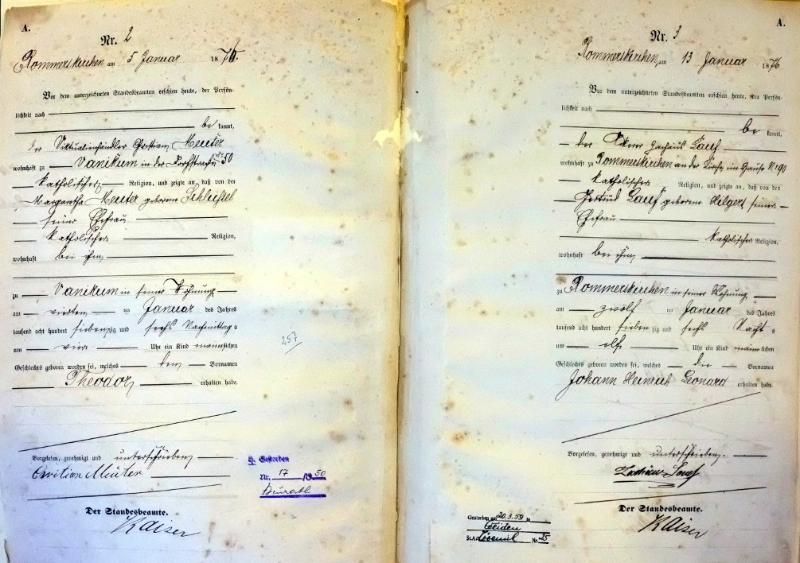 A.
Nr. 2
Rommerskirchen am 5 Januar 1876.
Vor dem unterzeichneten Standesbeamten erschien heute, der Persön-
lichkeit nach
be kannt,
der
Meuter
wohnhaft zu Vanikum in der No 50
katholischer Religion, und zeigte an, daß von der
Meuter geborene Schlüssel
seiner Ehefrau
katholischer Religion,
wohnhaft bei ihm
zu Vanikum in seiner Wohnung
am vierten ten Januar des Jahres
tausend acht hundert siebenzig und sechs Nachmittags
um vier Uhr ein Kind männlichen
Geschlechts geboren worden sei, welches den Vornamen
Theodor erhalten habe.
Vorgelesen, genehmigt und unterschrieben
Der Standesbeamte.
Kaiser
257
Gestorben
Nr. 17 50
A.
Nr. 3
Rommerskirchen, am 13 Januar 1876
Vor dem unterzeichneten Standesbeamten erschien heute, der Persön-
lichkeit nach
be kannt,
der Ackerer Lauf
wohnhaft zu Rommerskirchen an der im Hause No 90
katholischer Religion, und zeigte an, daß von der
Gertrud Lauf geborene Helgers seiner
Ehefrau
katholischer Religion,
wohnhaft bei ihm
zu Rommerskirchen in seiner Wohnung
am zwölf ten Januar des Jahres
tausend acht hundert sieben zig und sechs Nacht
um elf Uhr ein Kind männlichen
Geschlechts geboren worden sei, welches den Vornamen
Johann Heinrich Leonard erhalten habe.
Vorgelesen, genehmigt und unterschrieben.
Der Standesbeamte.
Kaiser
Gestorben am 20.3.59 in
Nr. 25